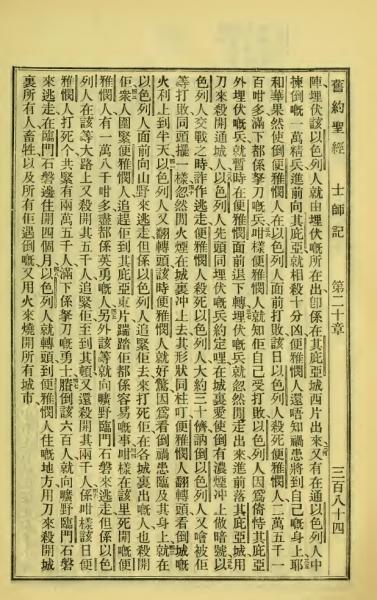 舊約聖經　士師記　第二十章　三百八十四
陣埋伏該以色列人就由埋伏嘅所在出、卽係在其庇亞城西片出來、又有在通以色列人中
揀倒嘅一萬精兵進前向其庇亞就相殺十分凶、便雅憫人還唔知禍患將到自己嘅身上、耶
和華果然使倒便雅憫人在以色列人面前打敗、該日以色列人殺死便雅憫人、二萬五千一
百咁多滿下都係拏刀嘅兵、咁樣便雅憫人就知佢自己受打敗、以色列人因爲倚恃其庇亞
外埋伏嘅兵就暫時在便雅憫面前退下轉、埋伏嘅兵就忽然閒走出來進前落其庇亞城、用
刀來殺開通城人、以色列人先頭同埋伏嘅兵約定哩在城裏愛使倒有濃煙沖上做暗號、以
色列人交戰之時詐作逃走、便雅憫人殺死以色列人大約三十儕、訥倒以色列人又噲被佢
等打敗同頭擺一樣、忽然閒火煙在城裏沖上去其形狀同柱叮、便雅憫人翻轉頭看倒城嘅
火利上到半天、以色列人又翻轉頭、該時便雅憫人就好驚因爲看倒禍患臨及其身上、就在
以色列人面前向山野來逃走、但係以色列人追緊佢去來打死佢、在各城裏出嘅人也殺開
佢、衆人圍緊便雅憫人追趕佢到其庇亞東片、踹踏佢都係容易嘅事、咁樣在該里死開嘅便
雅憫人有一萬八千咁多、盡都係英勇嘅人、另外該等就向曠野臨門石磐來逃走、但係以色
列人在該等大路上又殺開其五千人、追緊佢至到其頓又還殺開其兩千人、係咁樣該日便
雅憫人打死个共聚有兩萬五千人、滿下係拏刀嘅勇士、𦢊倒該六百人就向曠野臨門石磐
來逃走、在臨門石磐邊住開四個月、以色列人就轉頭到便雅憫人住嘅地方、用刀來殺開城
裏所有人畜牲以及所有佢遇倒嘅、又用火來燒開所有城市、